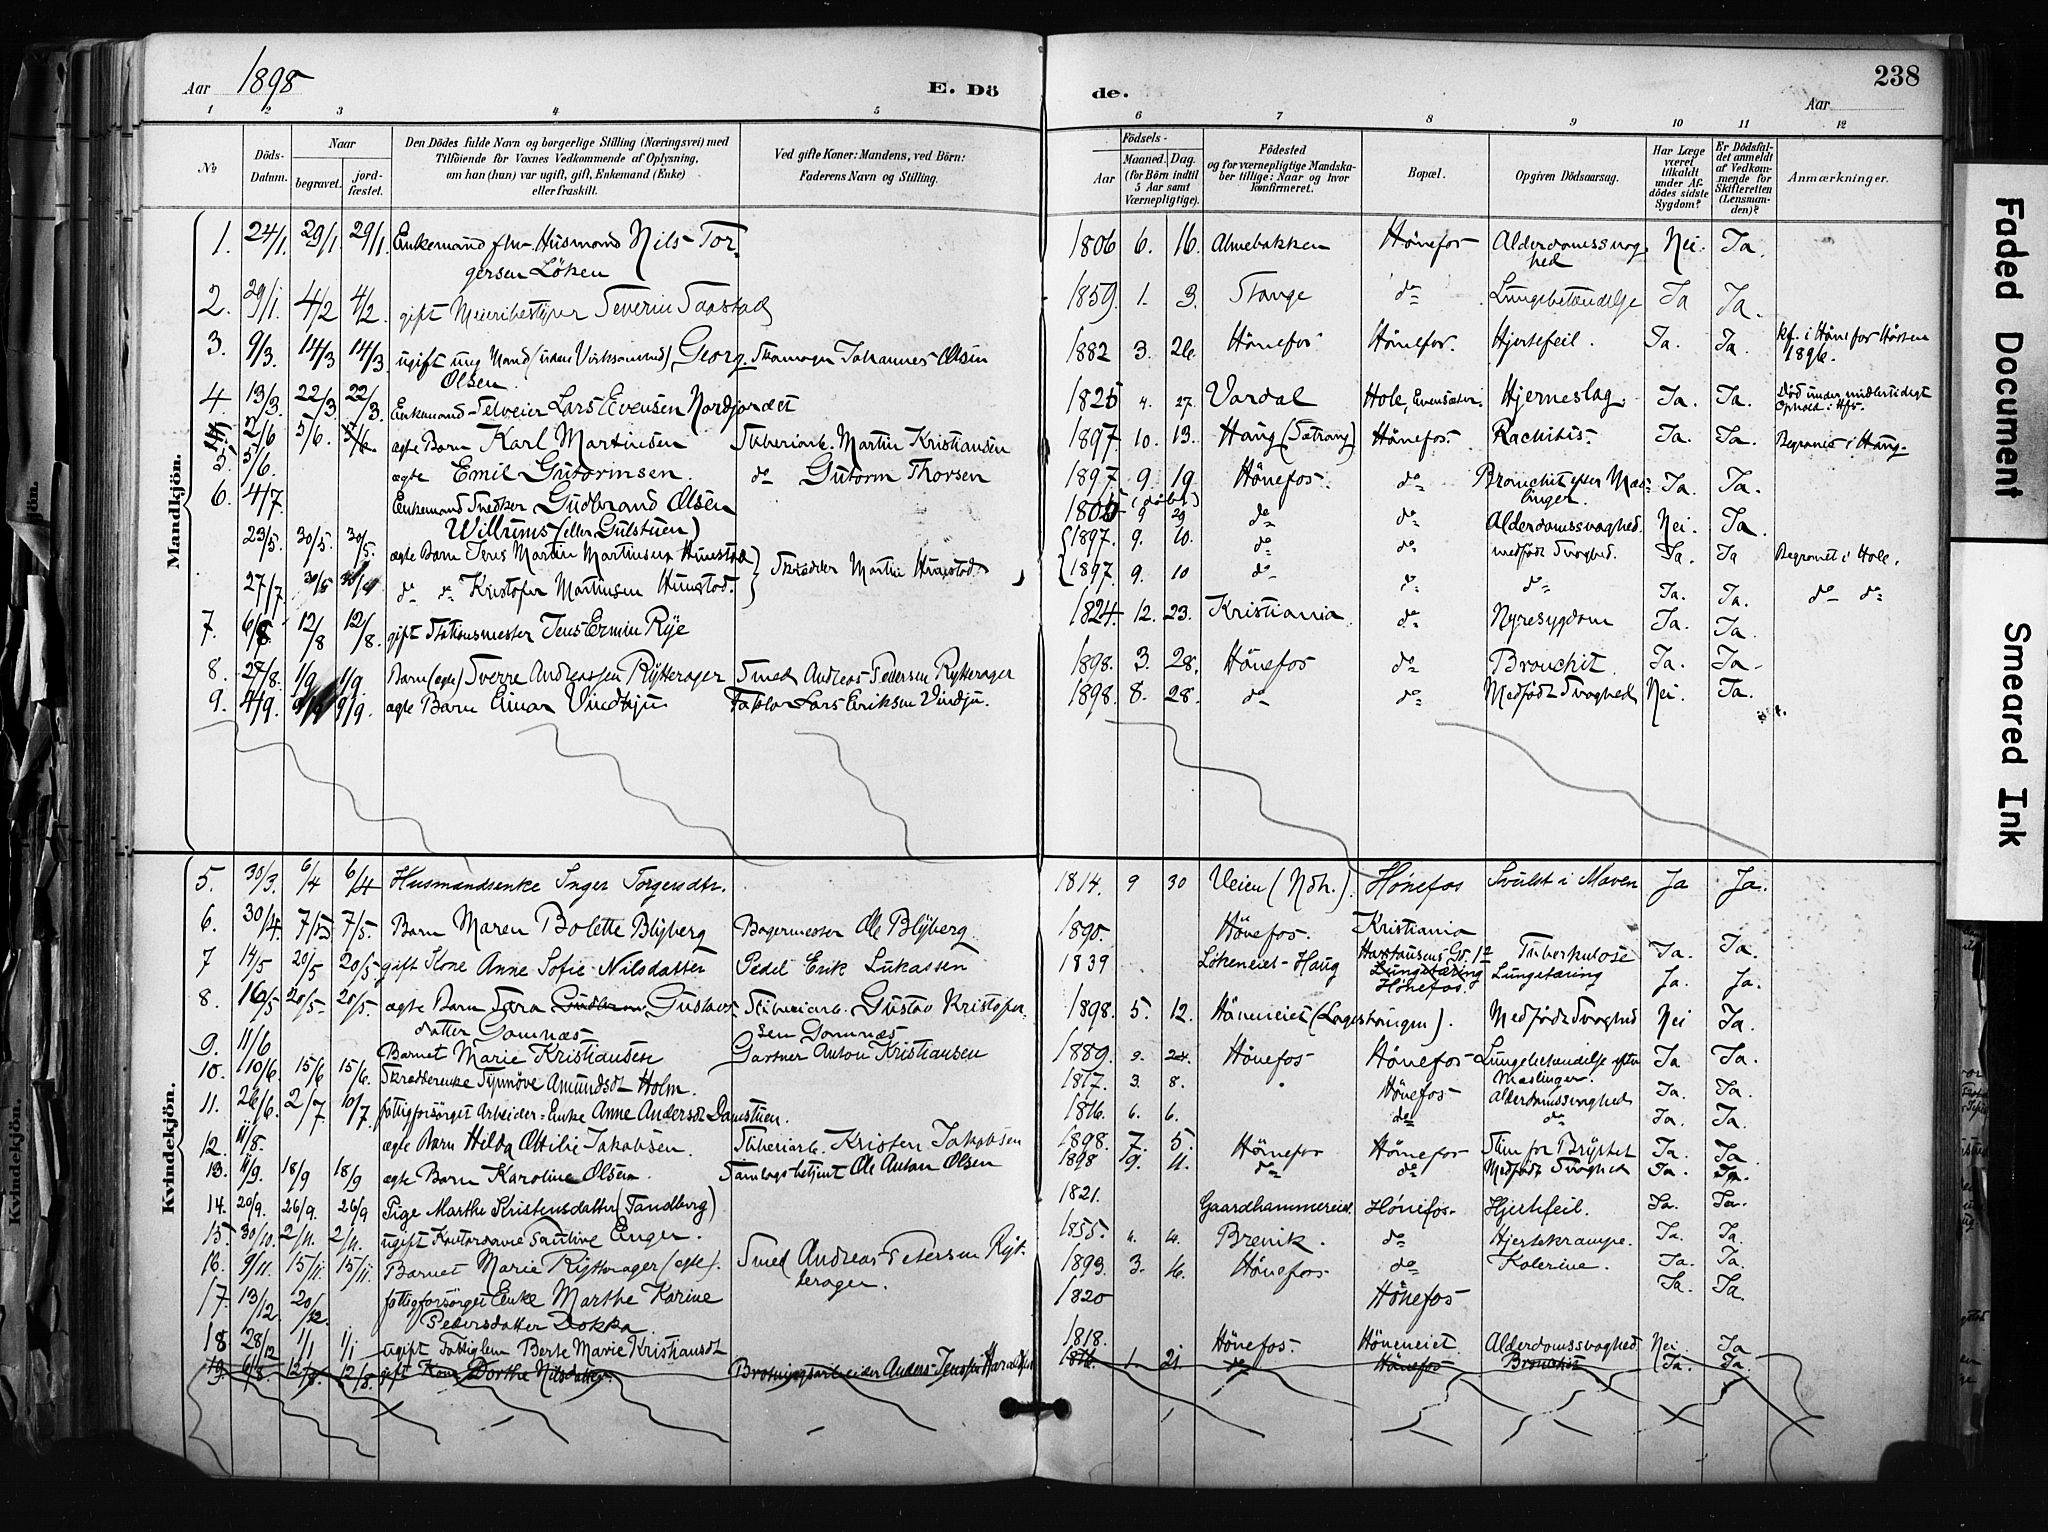 Aar 1898
E. Dö
de.
238
Aar
1 2 3 4 5 6 7 8 9 10 11 12
No
Döds-Datum.
Naar
begravet.
jord-fæstet.
Den Dödes fulde Navn og borgerlige Stilling (Næringsvei) med
Tilföiende for Voxnes Vedkommende af Oplysning,
om han (hun) var ugift, gift, Enkemand (Enke)
eller fraskilt.
Ved gifte Koner: Mandens, ved Börn:
Faderens Navn og Stilling.
Födsels-
Aar
Maaned. Dag.
(for Börn indtil
5 Aar samt
Værnepligtige).
Födested
og for værnepligtige Mandska-
ber tillige: Naar og hvor
konfirmeret.
Bopæl.
Opgiven Dödsaarsag.
Har Læge
været
tilkaldt
under Af-
dödes sidste
Sygdom?
Er Dödsfal-
det anmeldt
af Vedkom-
mende for
Skifteretten
(Lensman-
den)?
Anmærkninger.
Mandkjön.
1. 24/1. 29/1. 29/1. Enkemand fhv. Husmand Nils Tor-
gersen Löken 1806 6. 16. Almebakken Hönefos Alderdomssvag-
hed Nei. Ja.
2. 29/1. 4/2 4/2. gift Meieribestyrer Severin Saastad 1859. 1. 3. Stange do Lungebetændelse Ja Ja.
3. 9/3. 14/3 14/3. ugift ung Mand (uden Virksomhed) Georg
Olsen. Skomager Johannes Olsen 1882 3. 26. Hönefos Hönefos. Hjertefeil. Ja. Ja. kf. i Hönefos Hösten
1896.
4. 13/3. 22/3. 22/3. Enkemand Selveier Lars Evensen Nordjordet 1825 4. 27. Vardal Hole, Hjerneslag. Ja. Ja. Död under midlertidigt
Ophold i Hfs.
2/6 5/6. 5/6. ægte Barn Karl Martinsen Sliberiarb. Martin Kristiansen 1897. 10. 13. Haug (Satrang) Hönefos. Rachitis. Ja. Ja. Begravet i Haug.
5. 5/6. ægte Emil Gutormsen. do Gutorm Thorsen 1897 9. 19. Hönefos. do Bronchit efter Mæs-
linger. Ja. Ja.
6. 4/7. Enkemand Snedker Gudbrand Olsen
Willrums (eller Gulstuen) (döbt) 9 29 do do Alderdomssvaghed. Nei. Ja.
23/5. 30/5. 30/5. ægte Barn Jens Martin Martinsen Hunstad 1897. 9. 10. do do medfödt Svaghed. Ja. Ja Begravet i Hole.
27/7. do do Kristofer Martinsen Hunstad. Skrædder Martin Hunstad 1897. 9. 10 do do do Ja. Ja. do do
7. 6/8 12/8 12/8. gift Stationsmester Jens Ermin Rye 1824 12. 23. Kristiania do Nyresygdom Ja. Ja.
8. 27/8. 1/9 1/9. Barn (ægte) Sverre Andreassen Rytterager Smed Andreas Pedersen Rytterager 1898. 3. 28. Hönefos do Bronchit. Ja. Ja.
9. 4/9. 9/9. ægte Barn Einar Vindju Lars Eriksen Vindju. 1898. 8. 28. do do Medfödt Svaghed Nei. Ja.
Kvindekjön.
5. 30/3. 6/4 6/4 Husmandsenke Inger Torgersdtr. 1814. 9 30 Veien (Ndr.). Hönefos Svulst i Maven Ja Ja.
6. 30/4. 7/5 7/5. Barn Maren Bolette Blyberg Bagermester Ole Blyberg. 1890. Hönefos. Kristiania
Tuberkulose Ja. Ja.
7 14/5 20/5 20/5 gift Kone Anne Sofie Nilsdatter Pedel Erik Lukassen 1839 Lökeneiet-Haug Lungetæring
Hönefos. Lungetæring Ja. Ja.
8. 16/5 20/5 20/5. ægte Barn Gustavs-
datter Gomnæs Sliberiarb. Gustav Kristofer-
sen Gomnæs 1898. 5. 12. Höneneiet Medfödt Svaghed Nei Ja.
9. 11/6 Barnet Marie Kristiansen Gartner Anton Kristiansen 1889. 24. Hönefos Hönefos Lungebetændelse efter
Mæslinger. Ja Ja.
10. 10/6. 15/6 15/6. Skrædderenke Synnöve Amundsdt. Holm. 1817. 3. 8. Hönefos Alderdomssvaghed Ja. Ja.
11. 26/6. 2/7. 10/7 fattigforsörget Arbeider-Enke Anne Andersdt. Damstuen. 1816. 6. 6. do do Ja. Ja.
12. 11/8. ægte Barn Hilda Ottilie Jakobsen. Sliberiarb. Kristen Jakobsen 1898. 7. 5. Hönefos Hönefos Slim for Brystet Ja. Ja.
13. 11/9. 18/9 18/9 ægte Barn Karoline Olsen. Samlagsbetjent Ole Anton Olsen 1898 9. 11. do do Medfödt Svaghed Ja. Ja.
14. 20/9. 26/9. 26/9 Pige Marthe Kristensdatter (Tandberg) 1821. Gaardhammereiet. Hönefos. Hjertefeil. Ja. Ja.
15. 30/10. 2/11. 2/11. ugift Enger. 1855. 4. 4. Brevik. do Hjertekrampe. Ja. Ja.
16. 9/11. 15/11. 15/11. Barnet Marie Rytterager (ægte). Smed Andreas Petersen Ryt-
terager. 1893. 3. 16. Hönefos. do Kolerine. Ja. Ja.
17. 13/12. 20/12. fattigforsörget Enke Marthe Karine
Pedersdatter Dokka. 1820 Hönefos Ja. Ja.
18 28/12 1/1 1/1 ugift Fattiglem Berte Marie Kristiansdt 1818. Hönefos. Höneneiet. Alderdomssvaghed Nei. Ja
19. 6/8 12/8. 12/8. gift Kone Dorthe Nilsdatter. Anders Jensen 1816. 1. 21. do Hönefos Bronchit Ja. Ja.
Faded Document
Smeared Ink
Kvindekjön.